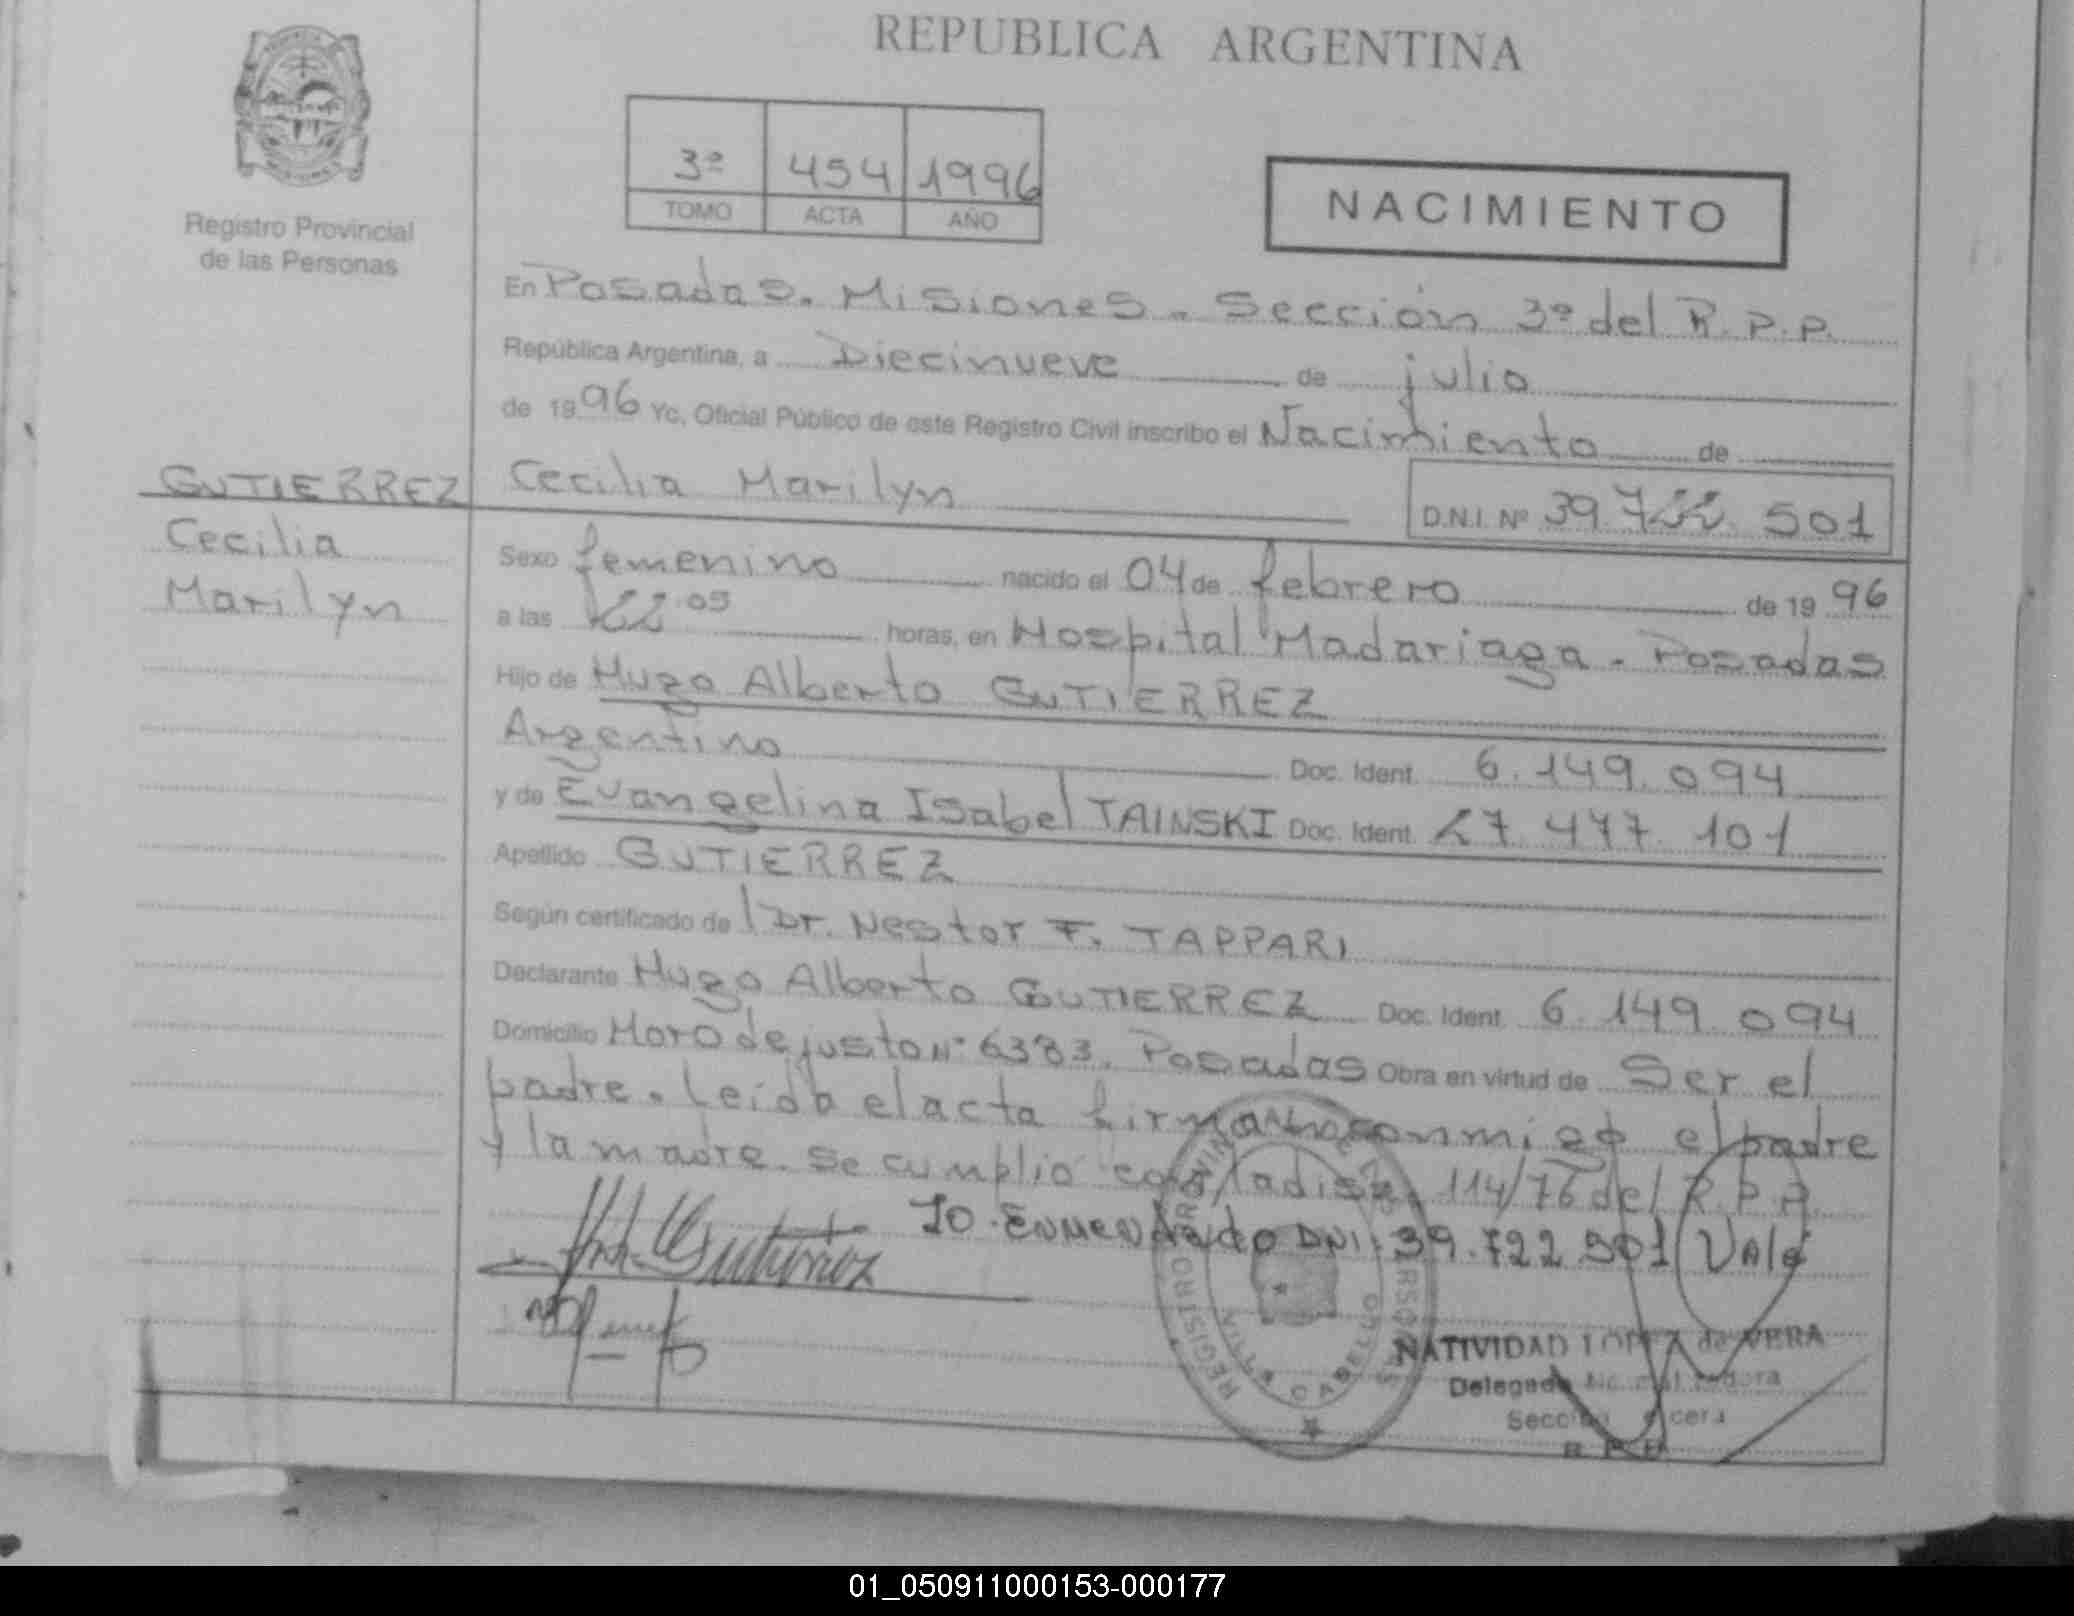 REPUBLICA ARGENTINA
Registro Provincial
de las Personas
3º 454 1996
TOMO ACTA AÑO
NACIMIENTO
En Posadas. Misiones. Sección 3º del R.P.P.
República Argentina, a Diecinueve de julio
de 1996 Yo, Oficial Público de este Registro Civil inscribo el Nacimiento de
GUTIERREZ
Cecilia
Marilyn
Cecilia Marilyn D.N.I. Nº 39.722.501
Sexo femenino nacido el 04 de febrero de 19 96
a las 22.05 horas, en Hospital Madariaga. Posadas
Hijo de Hugo Alberto GUTIERREZ
Argentino Doc. Ident. 6.149.094
y de Evangelina Isabel TAINSKI Doc. Ident. 27.477.101
Apellido GUTIERREZ
Según certificado de Dr. Nestor F. TAPPARI
Declarante Hugo Alberto GUTIERREZ Doc. Ident. 6.149.094
Domicilio Moro de justo Nº 6383. Posadas Obra en virtud de Ser el
padre. Leída el acta firman conmigo el padre
y la madre. Se cumplió con la disp. 114/76 del R.P.P.
Enmendado DNI 39.722.501 Vale
REGISTRO
CABELLO
NATIVIDAD LOPEZ de VERA
Delegada
R.P.P.
01_050911000153-000177